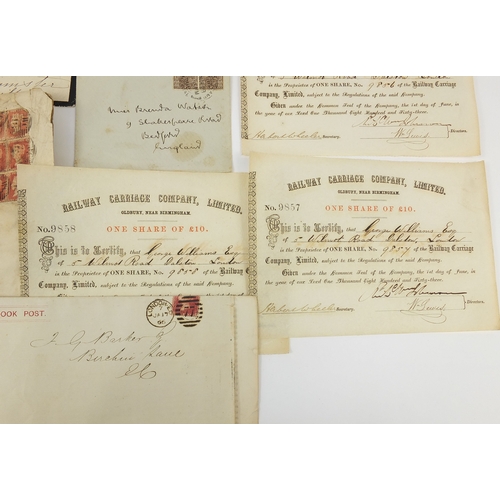 Miss Brenda Water
9 Shakespeare Road
Bedford
England
is the Proprietor of ONE SHARE, No. 9856 of the Railway Carriage
Company, Limited, subject to the Regulations of the said Company.
Given under the Common Seal of the Company, the 1st day of June,
in the year of our Lord One Thousand Eight Hundred and Sixty-three.
Secretary.
Directors.
RAILWAY CARRIAGE COMPANY, LIMITED,
OLDBURY, NEAR BIRMINGHAM.
No. 9858
ONE SHARE OF £10.
This is to Certify, that George Williams Esq
of 5 Road Dalston London
is the Proprietor of ONE SHARE, No. 9858 of the Railway Carriage
Company, Limited, subject to the Regulations of the said Company.
RAILWAY CARRIAGE COMPANY, LIMITED,
OLDBURY, NEAR BIRMINGHAM.
No. 9857
ONE SHARE OF £10.
This is to Certify, that George Williams Esq
of 5 Road Dalston London
is the Proprietor of ONE SHARE, No. 9857 of the Railway Carriage
Company, Limited, subject to the Regulations of the said Company.
Given under the Common Seal of the Company, the 1st day of June,
in the year of our Lord One Thousand Eight Hundred and Sixty-three.
Secretary.
Directors.
OOK POST.
LONDON
77
J. G. Barker Esq
Birchin Lane
EC